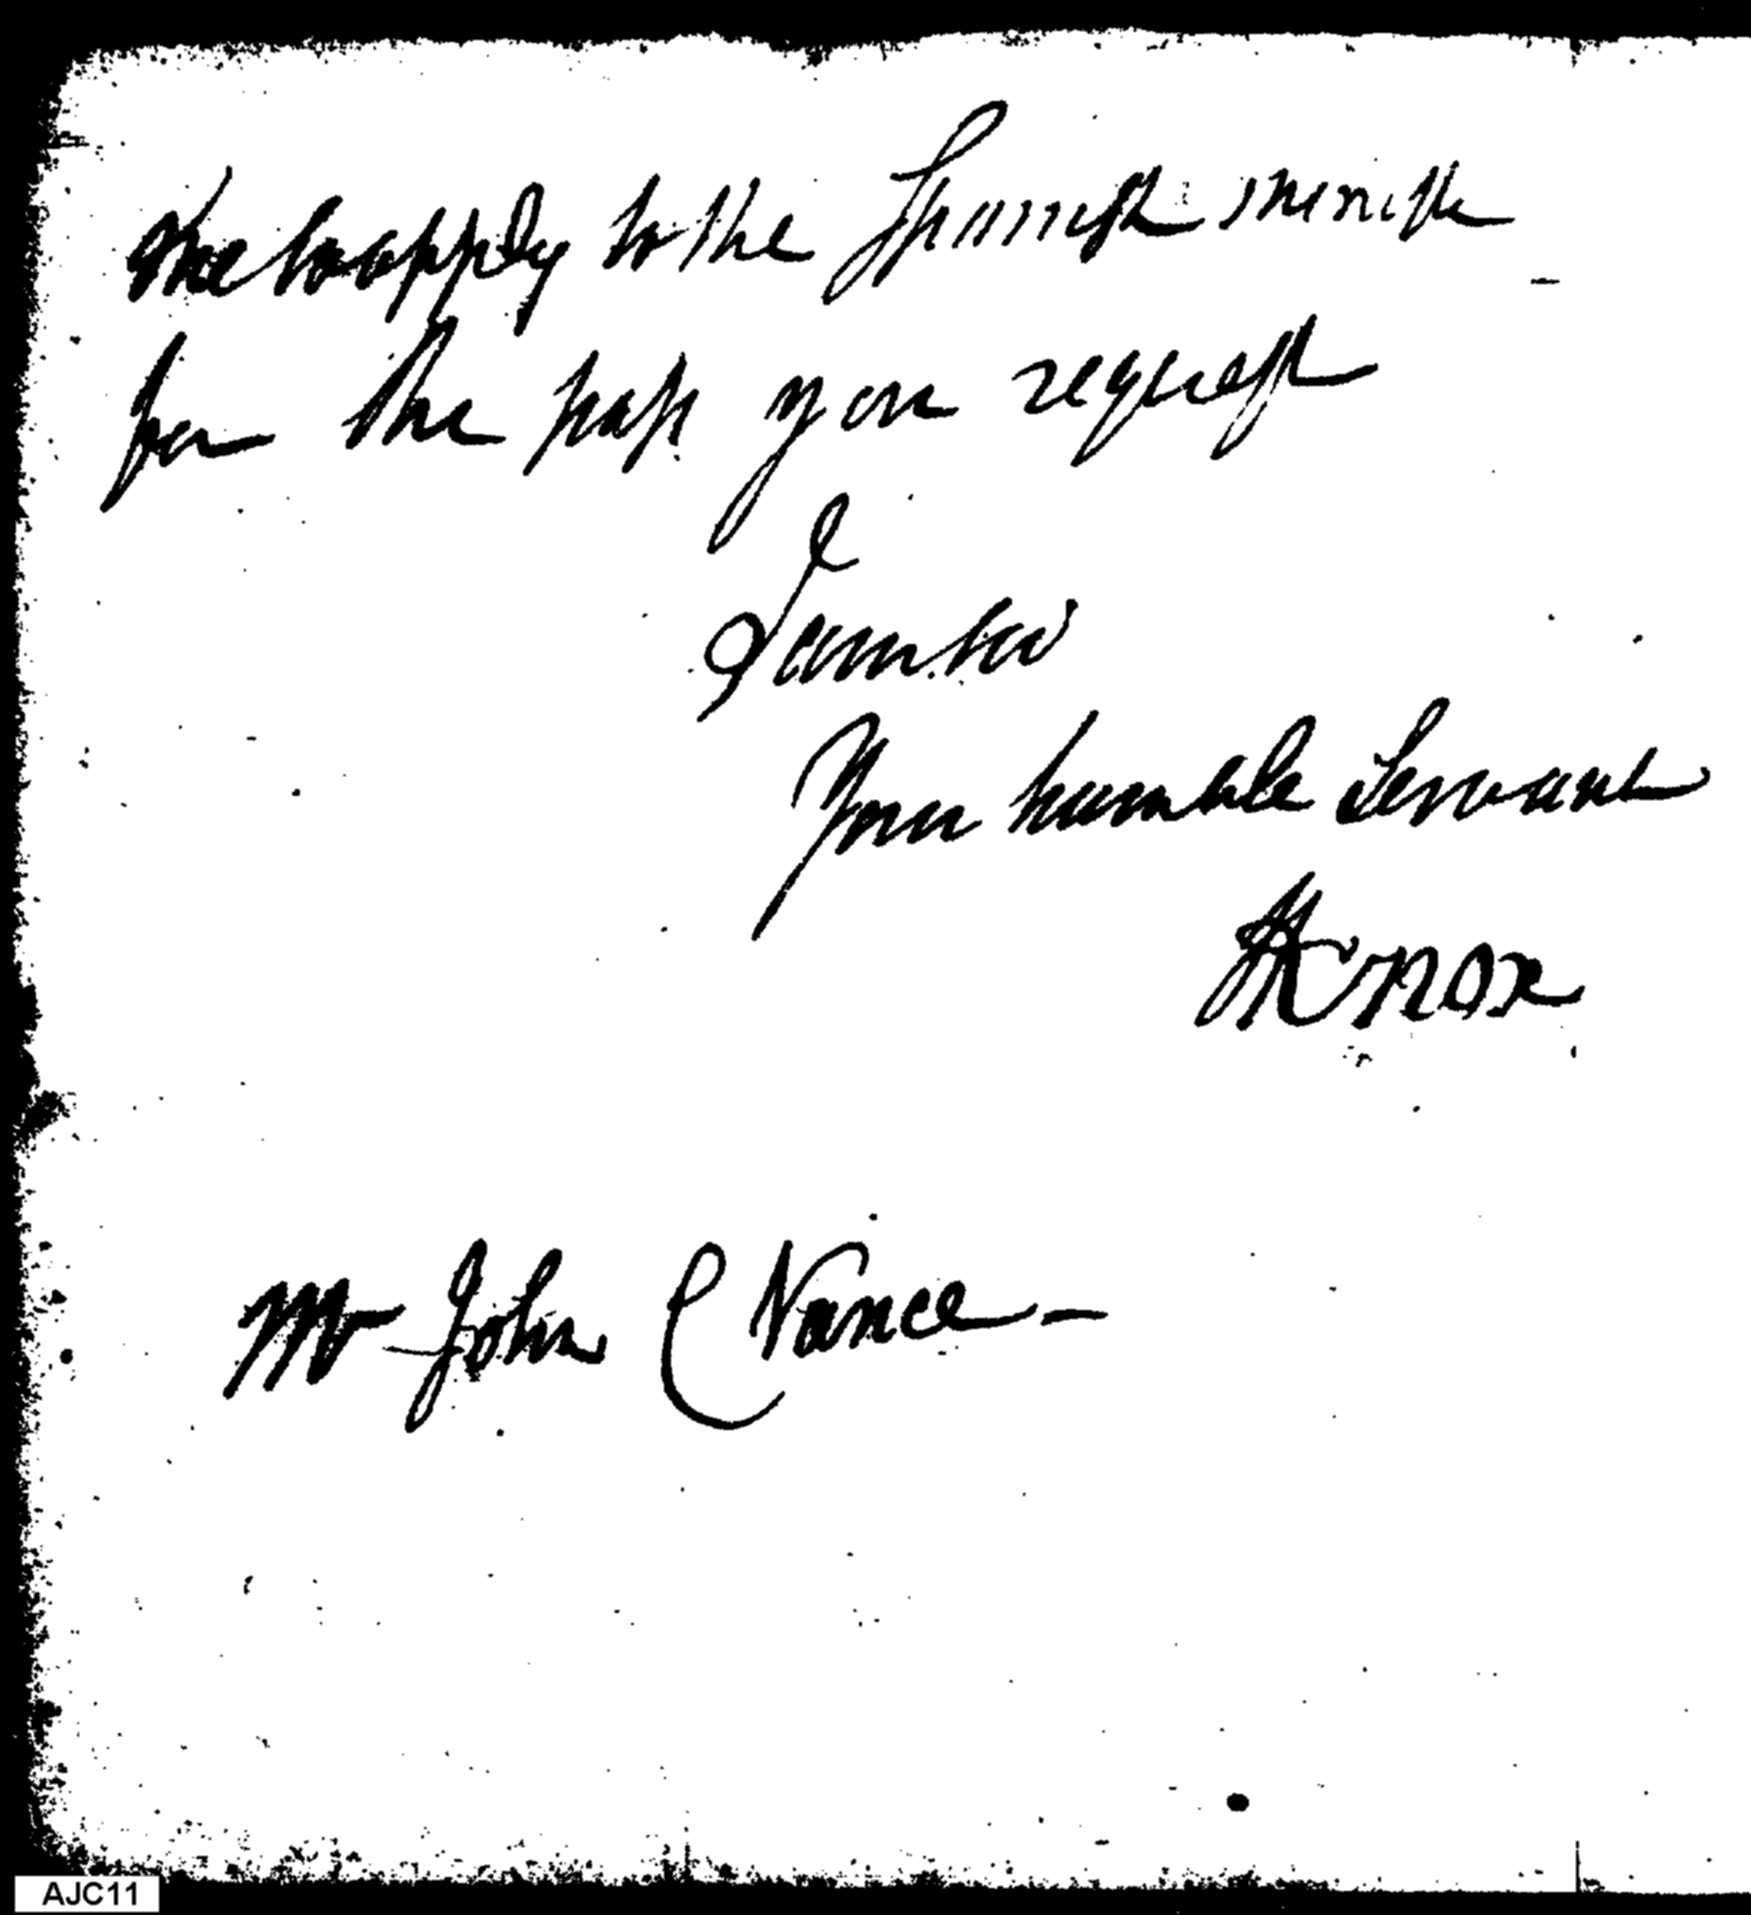 me to apply to the Spanish minister
for the pass you request
I am sir
Your humble Servant
HKnox
Mr John C Nance —
AJC11